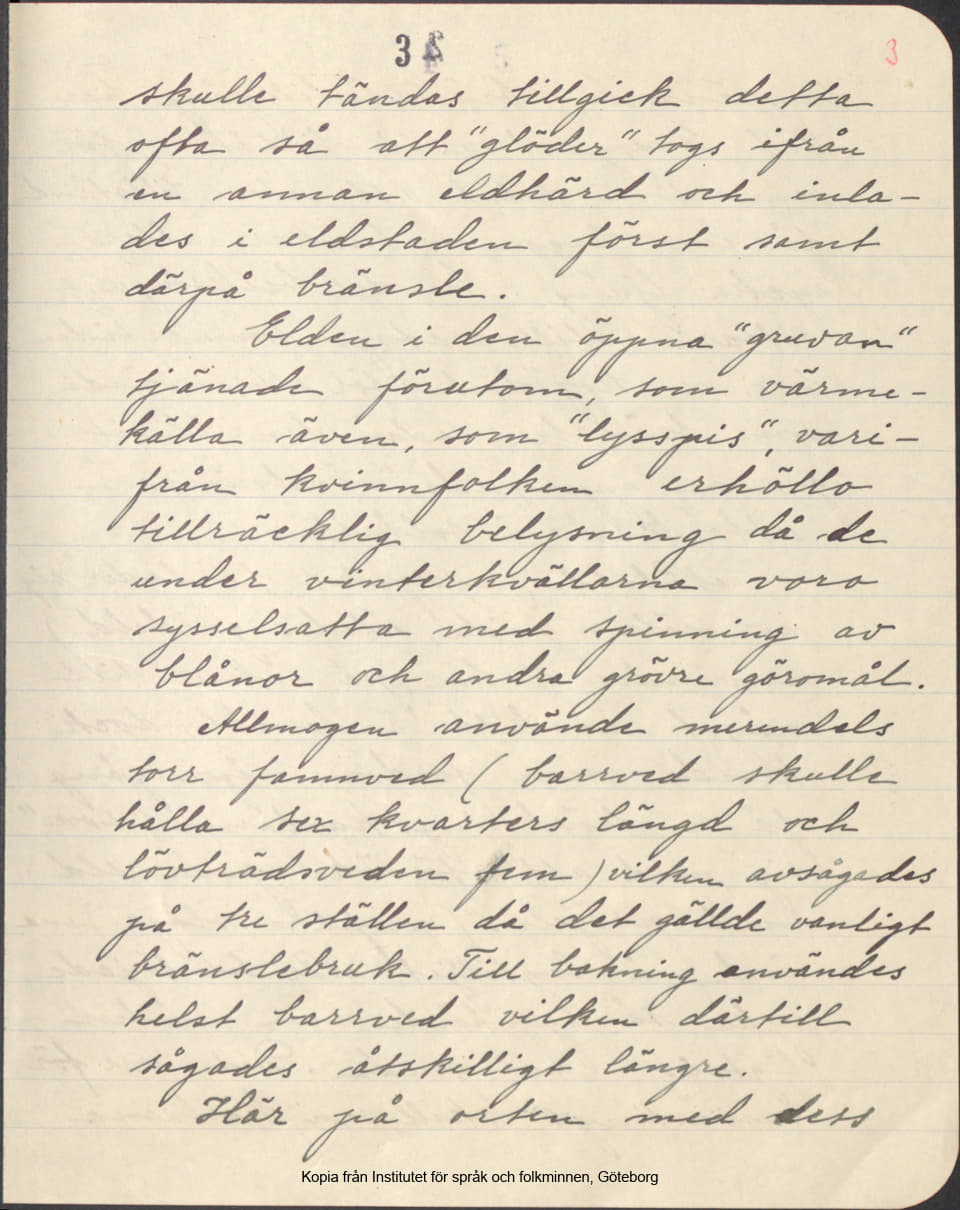 3
3
skulle tändas tillgick detta
ofta så att "glöder" togs ifrån
en annan eldhärd och inla-
des i eldstaden först samt
därpå bränsle.
Elden i den öppna "gruvan"
tjänade förutom, som värme-
källa även, som "lysspis", vari-
från kvinnfolken erhöllo
tillräcklig belysning då de
under vinterkvällarna voro
sysselsatta med spinning av
blånor och andra grövre göromål.
Allmogen använde merendels
torr famnved (barrved skulle
hålla sex kvarters längd och
lövträdsveden fem) vilken avsågades
på tre ställen då det gällde vanligt
bränslebruk. Till bakning användes
helst barrved vilken därtill
sågades åtskilligt längre.
Här på orten med dess
Kopia från Institutet för språk och folkminnen, Göteborg